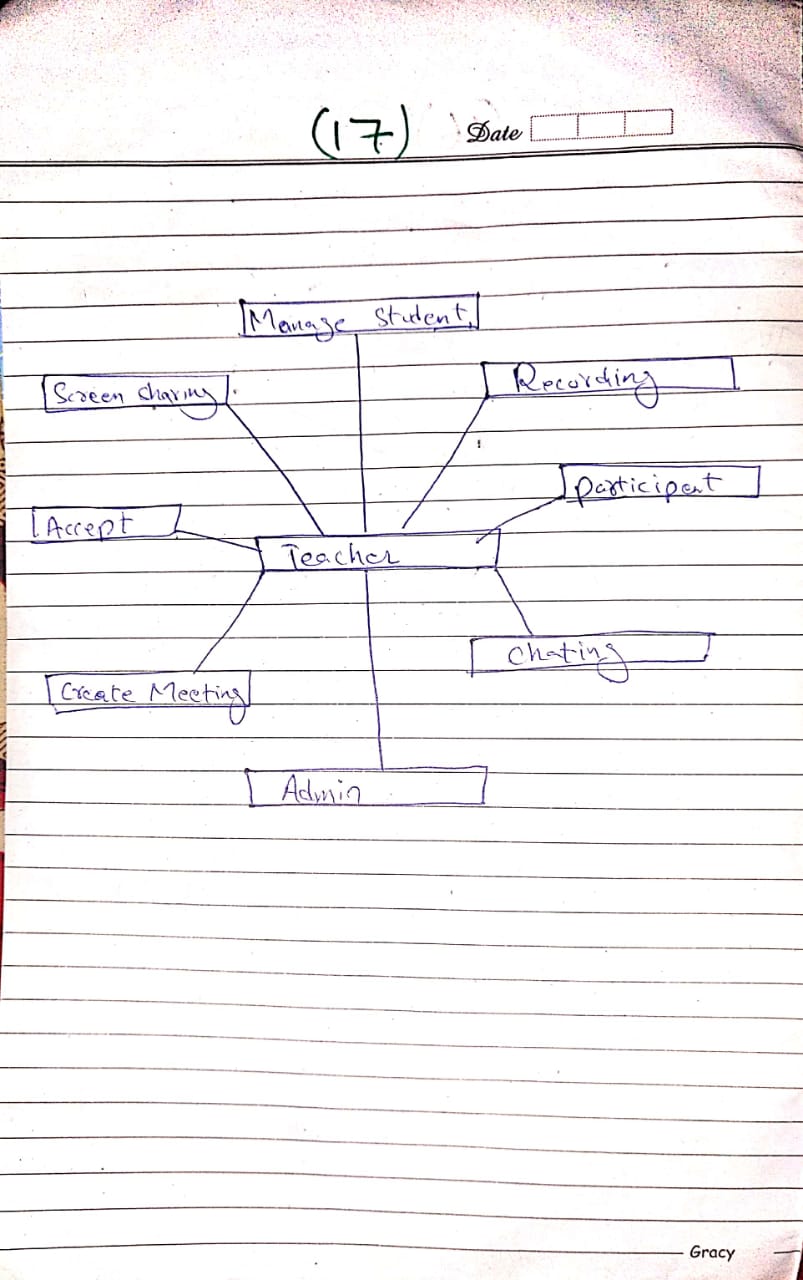 (17) Date
Manage Student
Screen Sharing
Recording
Participent
Accept
Teacher
Chating
Create Meeting
Admin
Gracy